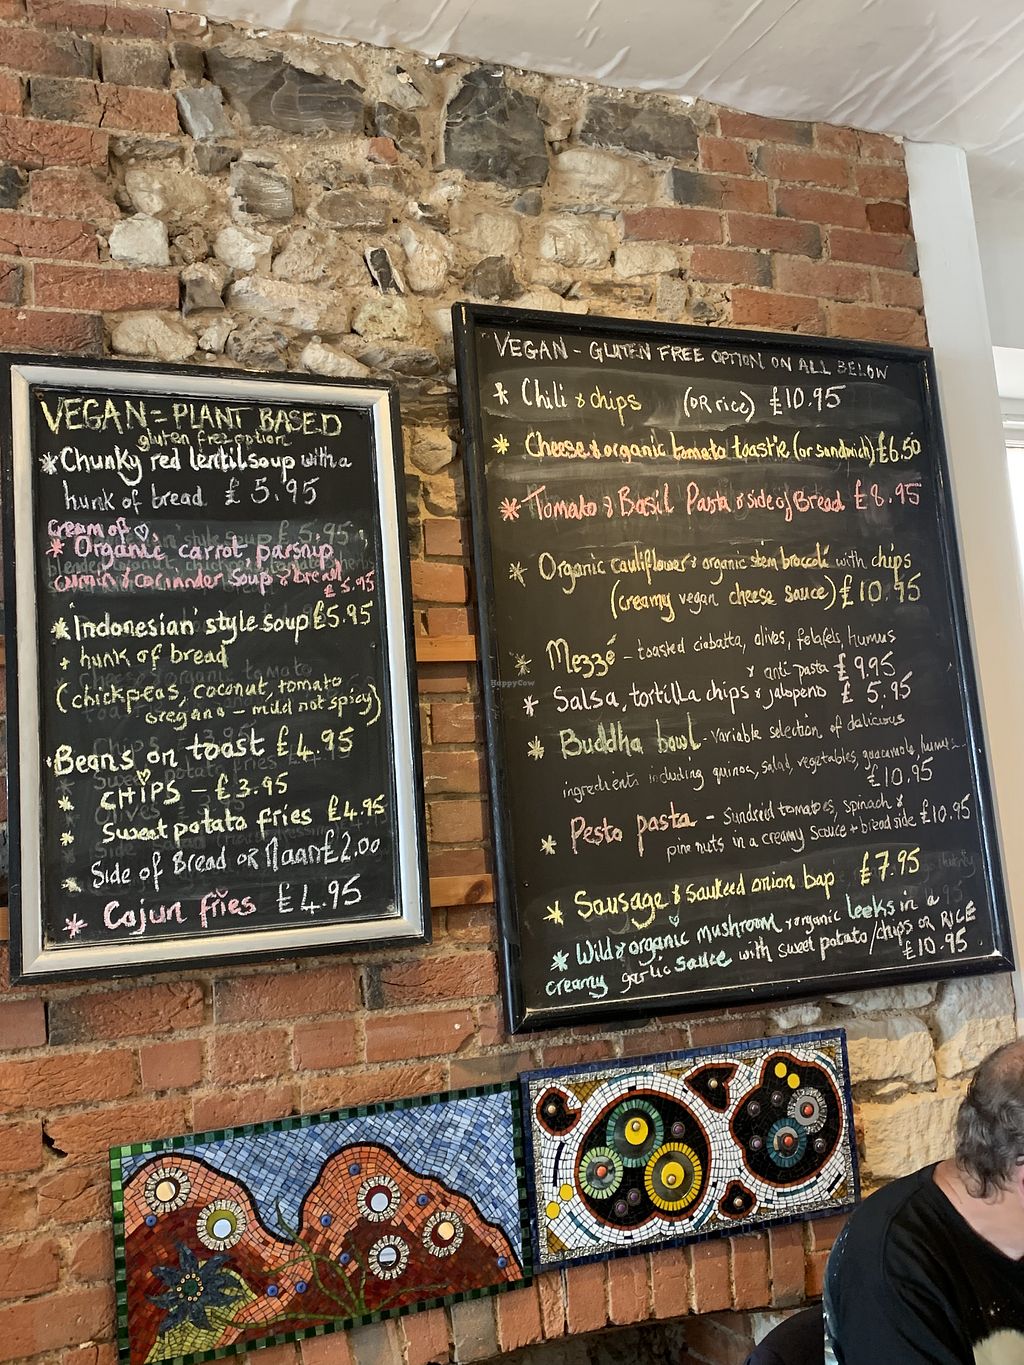 VEGAN = PLANT BASED
gluten free option
* Chunky red lentil soup with a
hunk of bread £5.95
Cream of
* Organic carrot parsnip
cumin & coriander soup & bread
£5.95
* Indonesian style soup £5.95
+ hunk of bread
(chickpeas, coconut, tomato
oregano - mild not spicy)
Beans on toast £4.95
* CHIPS - £3.95
* Sweet potato fries £4.95
* Side of Bread OR Naan £2.00
* Cajun fries £4.95
VEGAN - GLUTEN FREE OPTION ON ALL BELOW
* Chili & chips (OR rice) £10.95
* Cheese & organic tomato toastie (or sandwich) £6.50
* Tomato & Basil Pasta & side of Bread £8.95
* Organic cauliflower & organic stem broccoli with chips
(creamy vegan cheese sauce) £10.95
* Mezzé - toasted ciabatta, olives, felafels, humus
& anti pasta £9.95
* Salsa, tortilla chips & jalapeno £5.95
* Buddha bowl - variable selection of dalicious
ingredients including quinoa, salad, vegetables, guacamole, humus
£10.95
* Pesto pasta - Sundried tomatoes, spinach &
pine nuts in a creamy sauce + bread side £10.95
* Sausage & sauteed onion bap £7.95
* Wild & organic mushroom & organic leeks in a
creamy garlic sauce with sweet potato/chips OR RICE
£10.95
HappyCow